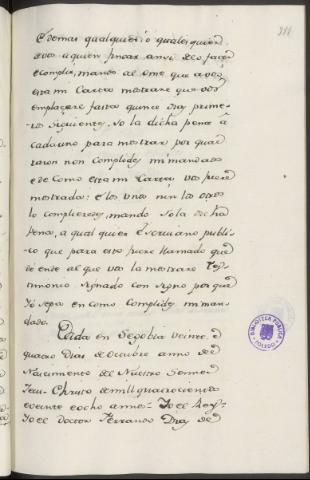 211
e demas qualquier o quales quier
de vos a quien fincar ansi de lo facer
e complir, mando al ome que a vos
esta mi Carta mostrare que vos
emplaçe fasta quince dias prime-
ros siguientes, so la dicha pena â
cada uno para mostrar por qual
razon non complides mi mandado
e de como esta mi Carta vos fuere
mostrada: e los unos nin los otros
lo complieredes, mando so la dicha
pena, a qual quier Escrivano publi-
co que para esto fuere llamado que
dé ende al que vos la mostrare Tes-
timonio signado con signo por que
Yo sepa en como complides mi man-
dado.
Dada en Segobia veinte e
quatro dias de Octubre anno del
Nascimiento del Nuestro Sennor
Jesu-Christo de mill quatrocientos
e veinte e ocho annos = Yo el Rey =
Yo el Doctor Ferrando Diaz de
BIBLIOTECA PUBLICA
TOLEDO